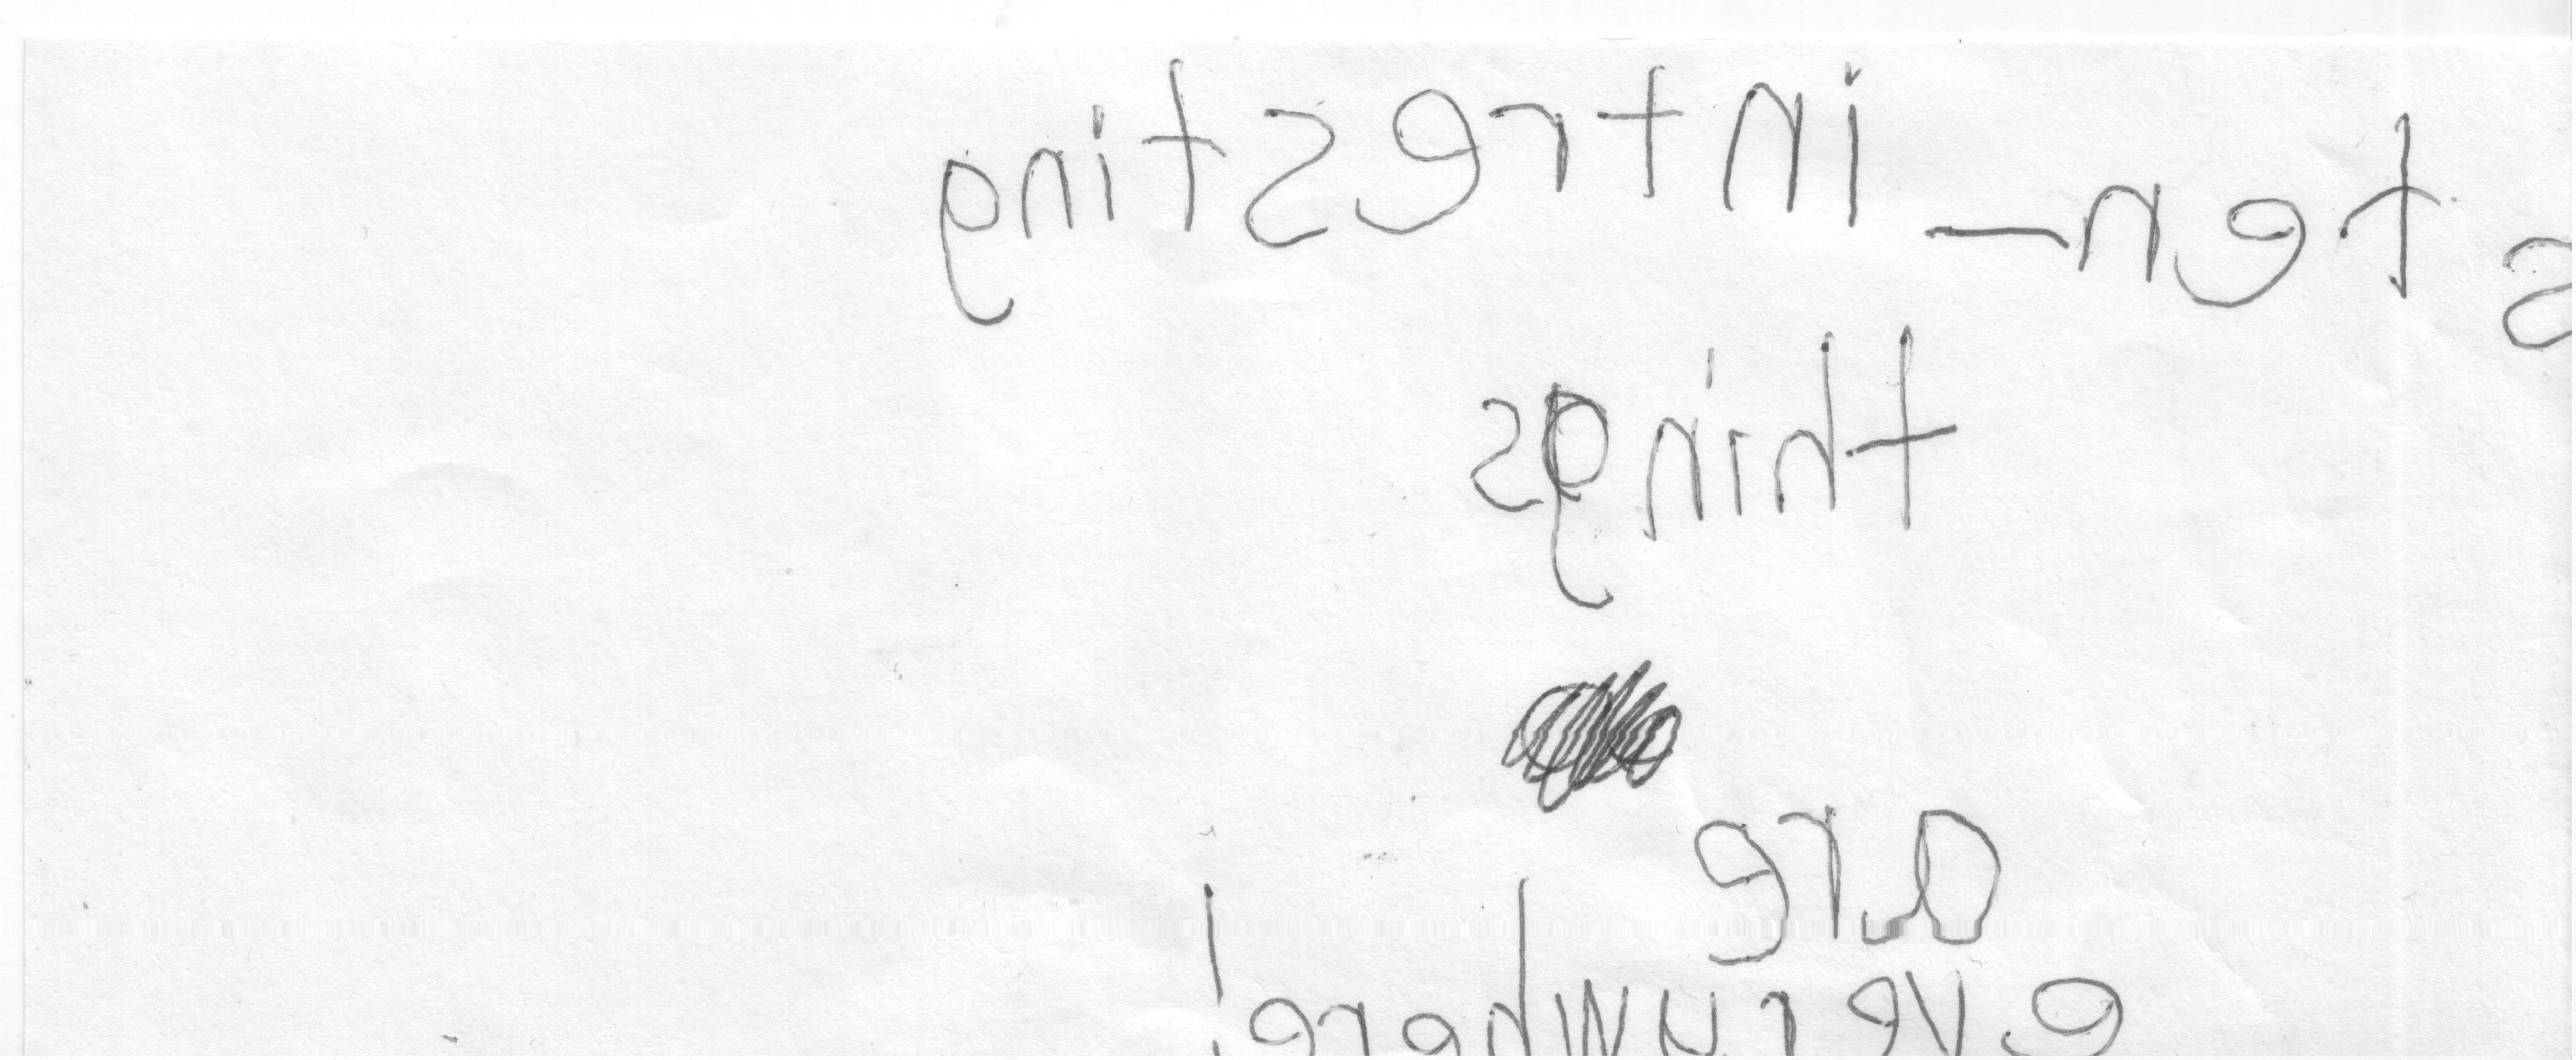 sten-intresting
things
are
everywhere!